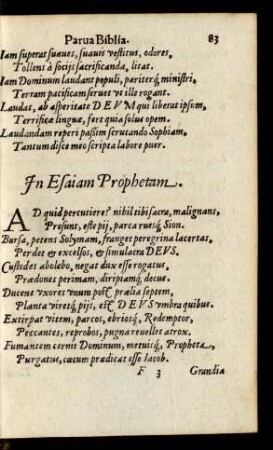 Parua Biblia. 83
Iam superat suaues, suauis vestitus, odores,
Tollens à socijs sacrificanda, litat.
Iam Dominum laudant populi, pariterq́; ministri,
Terram pacificam seruet vt ille rogant.
Laudat, ab asperitate DEVM qui liberat ipsum,
Terrificæ linguæ, fert quia solus opem.
Laudandam reperi paßim scrutando Sophiam,
Tantum disce meo scripta labore puer.
In Esaiam Prophetam.
AD quid percutiere? nihil tibi sacra, malignans,
Prosunt, este pij, parca ruesq́; Sion.
Bursa, petens Solymam, franget peregrina lacertas,
Perdet & excelsos, & simulacra DEVS.
Custodes abolebo, negat dux esse rogatus,
Prædones perimam, diripiamq́; decus.
Ducent vxores vnum post prælia septem,
Planta viretq́; pijs, est DEVS vmbra quibus.
Extirpat vitem, parcos, ebriosq́; Redemptor,
Peccantes, reprobos, pugna reuellet atrox.
Fumantem cernit Dominum, metuisq́; Propheta,
Purgatus, cæcum prædicat esse Iacob.
F 3 Grandia